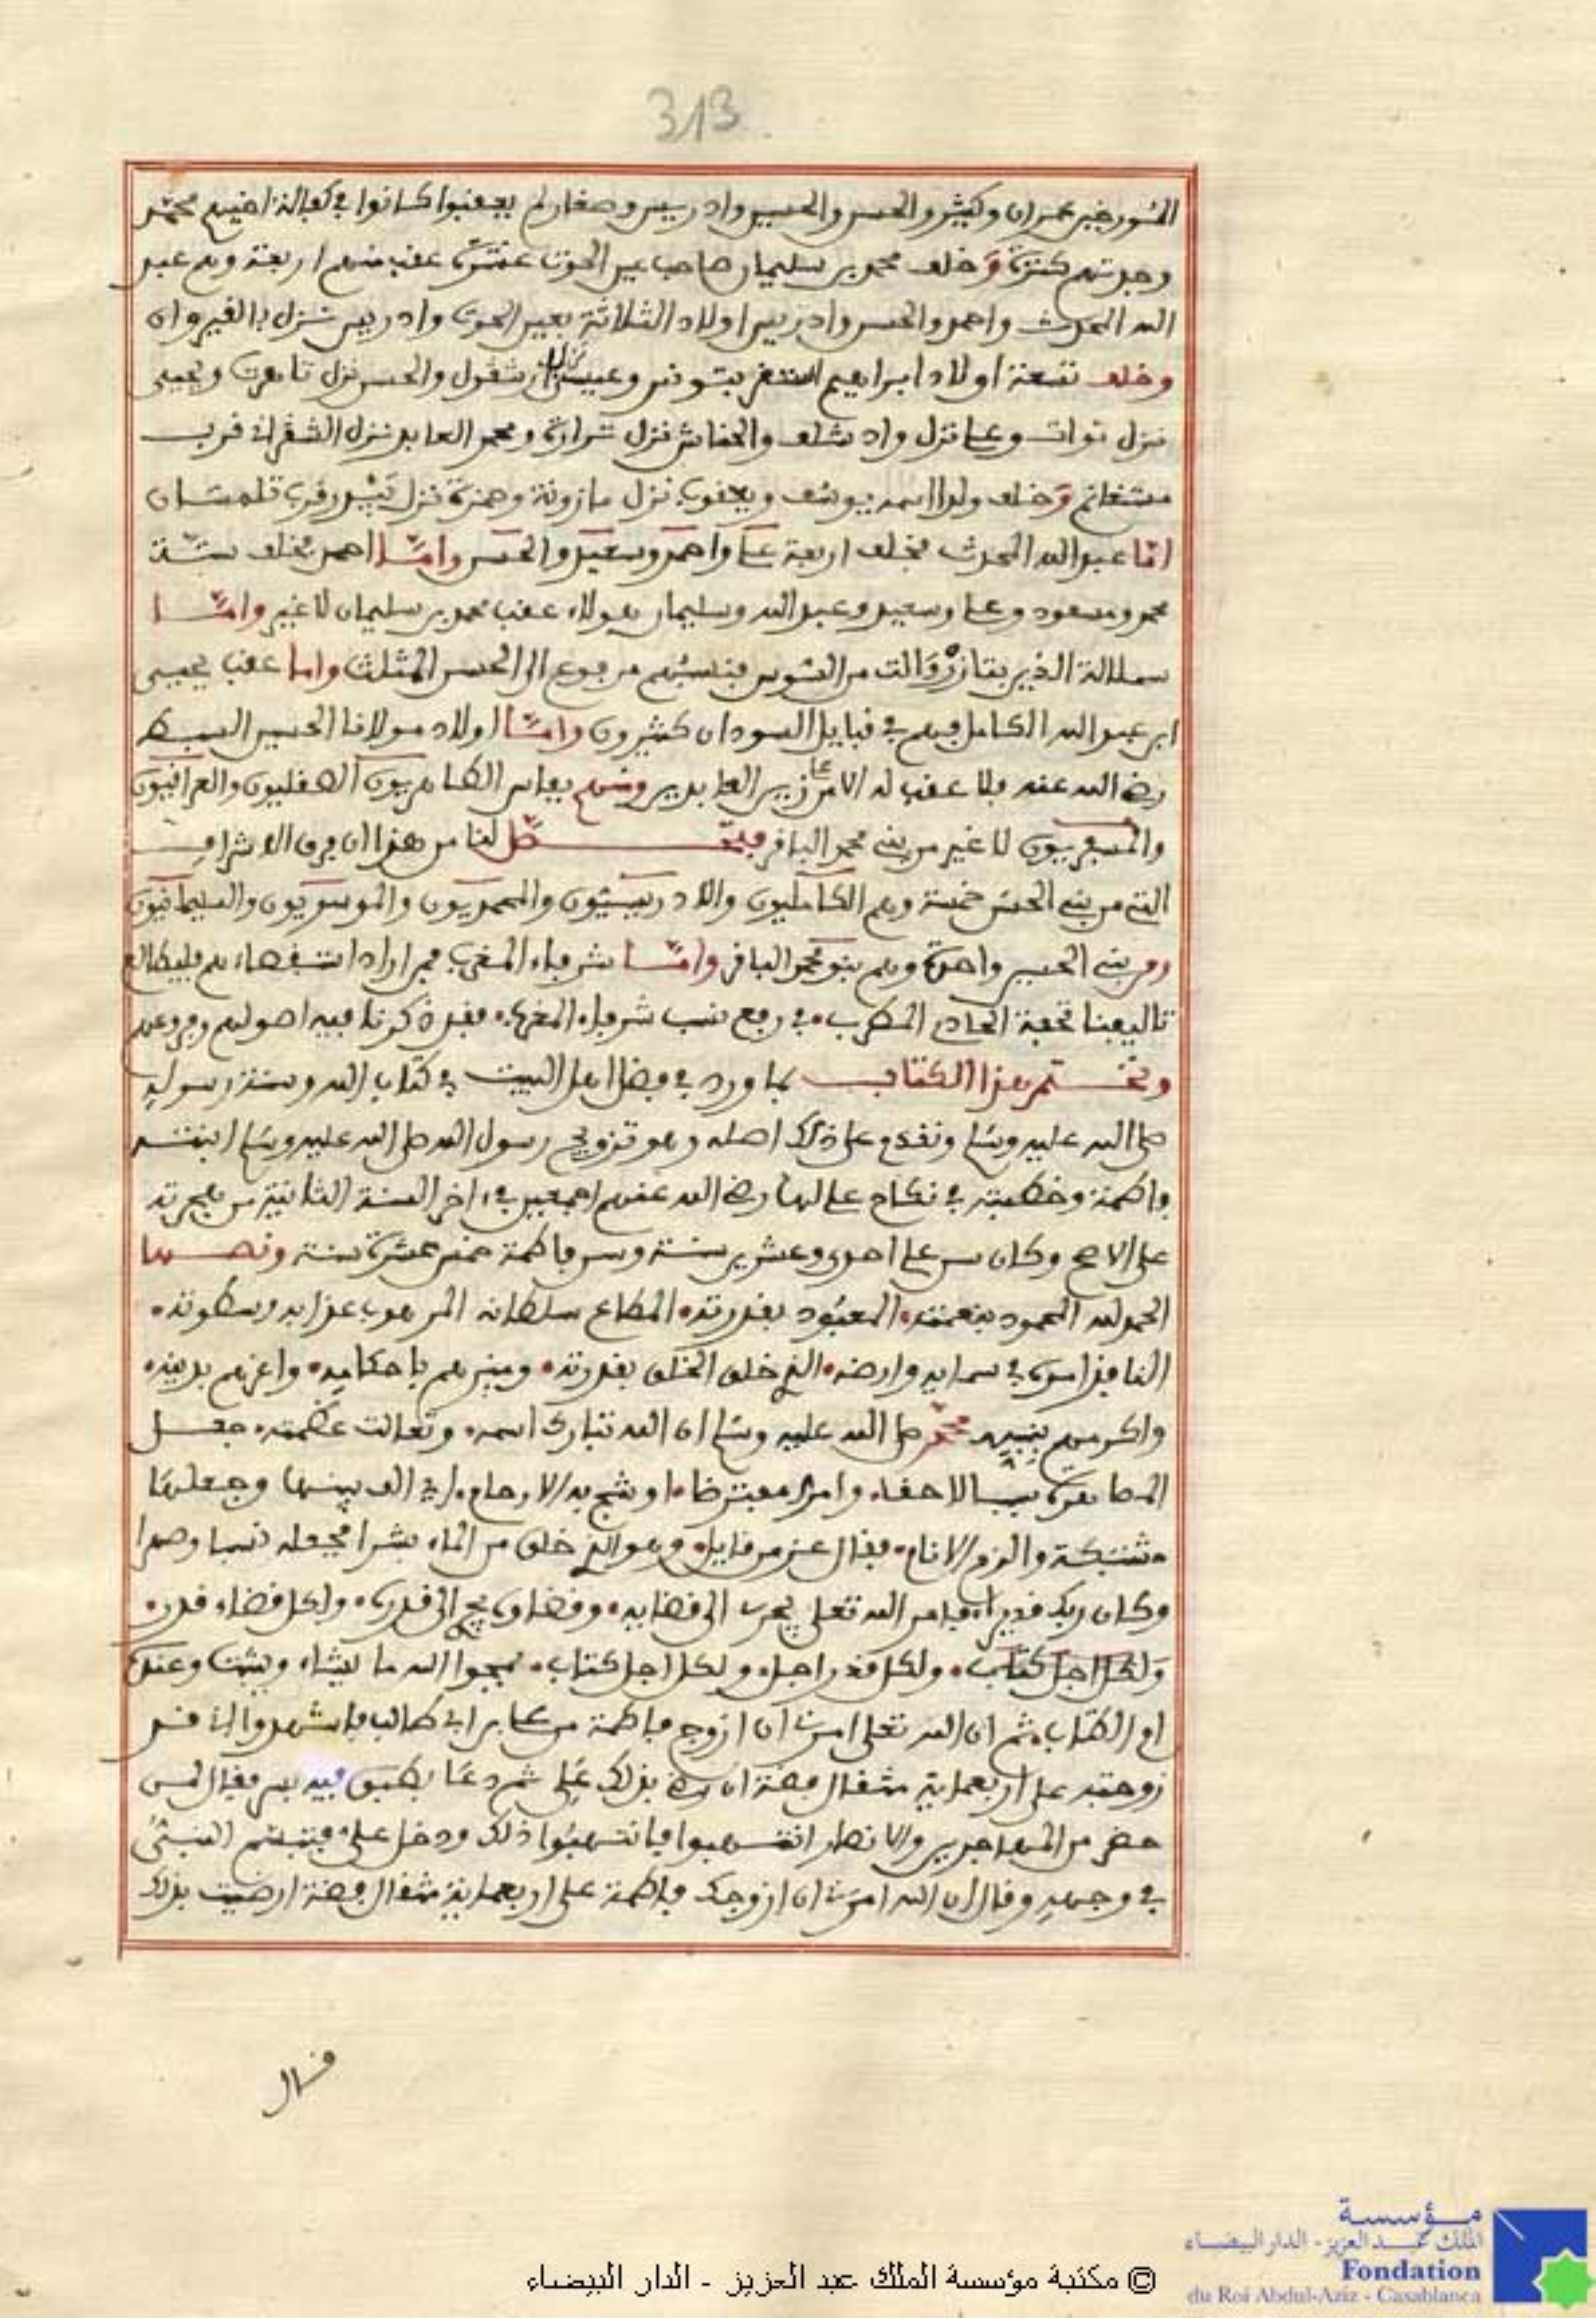 313
المؤرخين عمران وكثير والحسن والحسين وادريس وصغار لم يعقبوا كانوا في كفالة اخيهم محمد
وجدتهم كنزة وخلف محمد بن سليمان صاحب عين الحوت عشرة عقب منهم اربعة وهم عبد
الله المحدث واحمد والحسن وادريس اولاد الثلاثة بعين الحوت وادريس نزل بالقيروان
وخلف تسعة اولاد ابراهيم استقر بتونس وعيسى نزل ارشقول والحسن نزل تاهرت ويحيى
نزل توات وعلي نزل واد شلف والحفاش نزل شرارة ومحمد العابد نزل الشقران قرب
مستغانم وخلف ولدا اسمه يوسف ويعقوب نزل مازونة وحمزة نزل قرب تلمسان
اما عبد الله المحدث فخلف اربعة علي واحمد وسعيد والحسن واما احمد فخلف ستة
محمد ومسعود وعلي وسعيد وعبد الله وسليمان هولاء عقب محمد بن سليمان لا غير واما
سملالة الذين بتازروالت من السوس فنسبهم مرفوع الى الحسن المثلث واما عقب يحيى
ابن عبد الله الكامل فهم في قبايل السودان كثيرون واما اولاد مولانا الحسين السبط
رضي الله عنه فلا عقب له الا من علي زين العابدين ومنهم بفاس الطاهريون الصقليون والعراقيون
والمسفريون لا غير من بني محمد الباقر فيتحصل لنا من هذا ان فرق الاشراف
التي من بني الحسن خمسة وهم الكامليون والادريسيون والمحمديون والموسويون والسليمانيون
ومن بني الحسين واحدة وهم بنو محمد الباقر واما شرفاء المغرب فمن اراد استقصاءهم فليطالع
تاليفنا تحفة الحادي المطرب في رفع نسب شرفاء المغرب فقد ذكرنا فيه اصولهم وفروعهم
ونختم هذا الكتاب بما ورد في فضل اهل البيت في كتاب الله وسنة رسوله
صلى الله عليه وسلم ونقدم على ذلك اصله وهو تزويج رسول الله صلى الله عليه وسلم ابنته
فاطمة وخطبته في نكاح علي لها رضي الله عنهم اجمعين في اخر السنة الثانية من هجرته
على الاصح وكان سن علي احدى وعشرين سنة وسن فاطمة خمس عشرة سنة ونصها
الحمد لله المحمود بنعمته المعبود بقدرته المطاع سلطانه المرهوب عذابه وسطوته
النافذ امره في سمايه وارضه الذي خلق الخلق بقدرته وميزهم باحكامه واعزهم بدينه
واكرمهم بنبيه محمد صلى الله عليه وسلم ان الله تبارك اسمه وتعالت عظمته جعل
المصاهرة سببا لاحقا وامرا مفترضا اوشج به الارحام اي الف بينها وجعلها
مشتبكة والزم الانام فقال عز من قايل وهو الذي خلق من الماء بشرا فجعله نسبا وصهرا
وكان ربك قديرا فامر الله تعلى يجري الى قضايه وقضاوه يجري الى قدره ولكل قضاء قدر
ولكل اجل كتاب ولكل قدر اجل ولكل اجل كتاب يمحوا الله ما يشاء ويثبت وعنده
ام الكتاب ثم ان الله تعلى امرني ان ازوج فاطمة من علي بن ابي طالب فاشهدوا اني قد
زوجته على اربعماية مثقال فضة ان رضي بذلك علي ثم دعا بطبق فيه بسر فقال لمن
حضر من المهاجرين والانصار انتهبوا فانتهبوا ذلك ودخل علي فتبسم النبي
في وجهه وقال ان الله امرني ان ازوجك فاطمة على اربعماية مثقال فضة ارضيت بذلك
قال
مؤسسة
الملك عبد العزيز - الدار البيضاء
Fondation
du Roi Abdul-Aziz - Casablanca
© مكتبة مؤسسة الملك عبد العزيز - الدار البيضاء